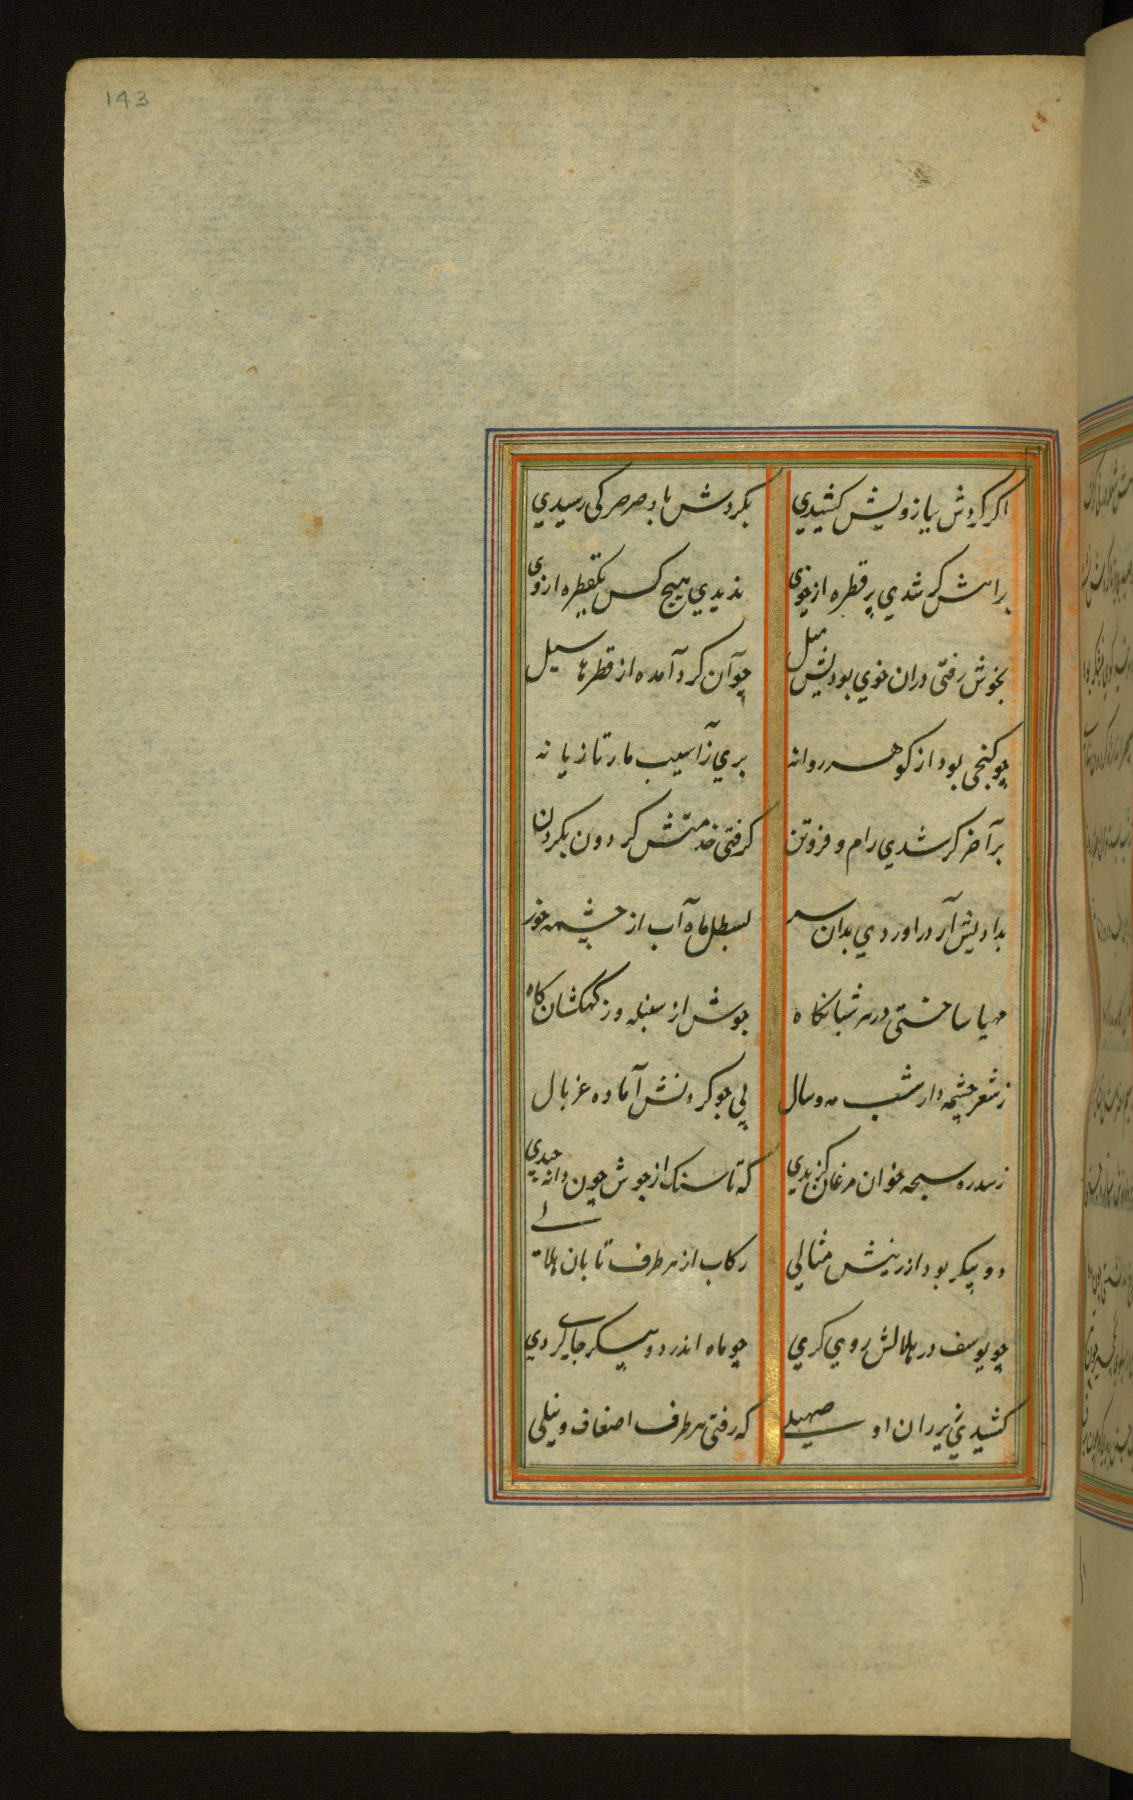 143
اکر کردش بیازویش کشیدي بکردش باد صرصر کی رسیدي
براهش کر شدي پر قطره از خوی ندیدي هیچ کس یکقطره از وی
بخوش رفتی دران خوي بودیش میل چو آن کرد آمده از قطرها سیل
چو کنجی بود از کوهر روانه بري ز آسیب مار تازیانه
بر آخر کر شدي رام و فروتن کرفتی خدمتش کردون بکردن
بدادیش ار دراوردي بدان سر بسطل ماه آب از چشمه خور
مهیا ساختی در هر شبانکاه جوش از سنبله وز کهکشان کاه
ز شعر چشمه دار شب مه و سال پی جو کردنش آماده غربال
ز سدره سبحه خوان مرغان کزیدي که تا سنک از جوش چون دانه چیدي
دو پیکر بود از زینش مثالي رکاب از هر طرف تابان هلالے
چو یوسف در هلالش روي کردي چو ماه اندر دو پیکر جاے کردي
کشیدي زیر ران او صهیلے که رفتی هر طرف اضعاف و نیلی